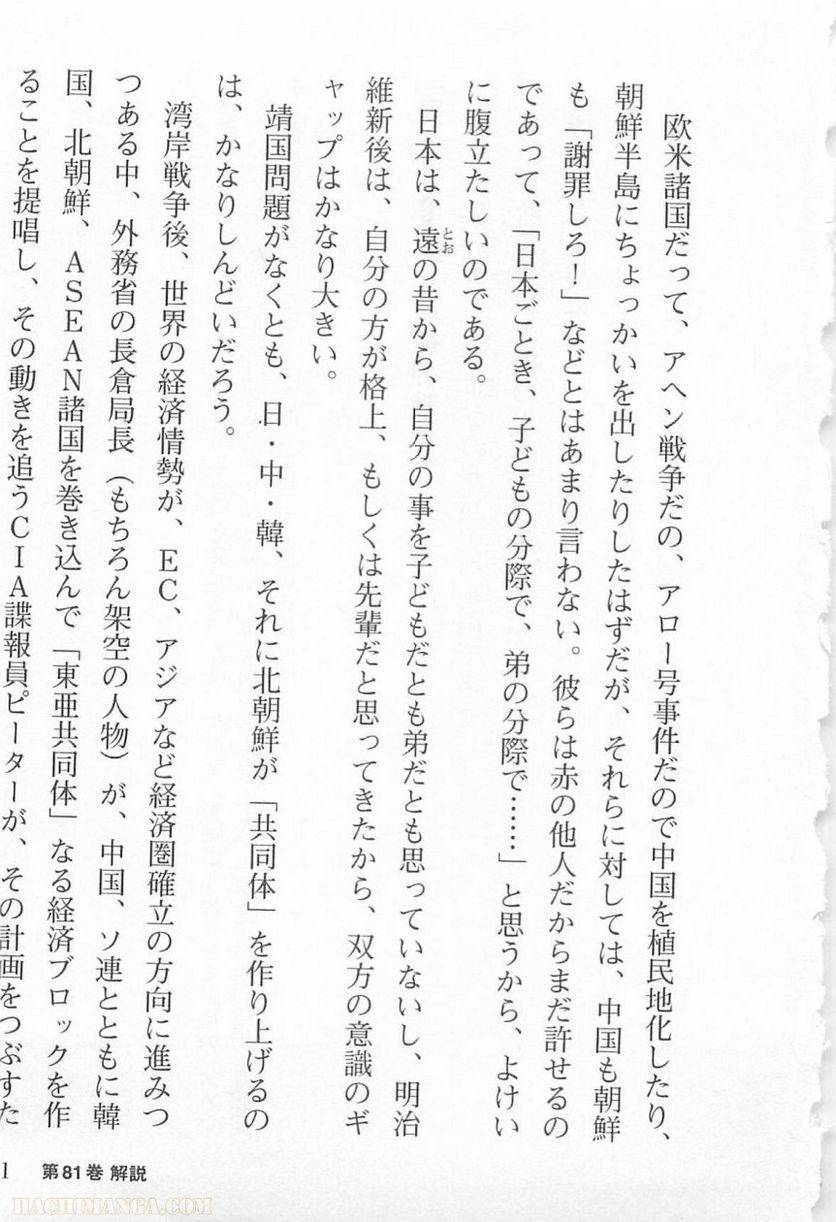 欧米諸国だって、アヘン戦争だの、アロー号事件だので中国を植民地化したり、
朝鮮半島にちょっかいを出したりしたはずだが、それらに対しては、中国も朝鮮
も「謝罪しろ！」などとはあまり言わない。彼らは赤の他人だからまだ許せるの
であって、「日本ごとき、子どもの分際で、弟の分際で……」と思うから、よけい
に腹立たしいのである。
日本は、遠の昔から、自分の事を子どもだとも弟だとも思っていないし、明治
とお
維新後は、自分の方が格上、もしくは先輩だと思ってきたから、双方の意識のギ
ャップはかなり大きい。
靖国問題がなくとも、日・中・韓、それに北朝鮮が「共同体」を作り上げるの
は、かなりしんどいだろう。
湾岸戦争後、世界の経済情勢が、EC、アジアなど経済圏確立の方向に進みつ
つある中、外務省の長倉局長（もちろん架空の人物）が、中国、ソ連とともに韓
国、北朝鮮、ASEAN諸国を巻き込んで「東亜共同体」なる経済ブロックを作
ることを提唱し、その動きを追うCIA諜報員ピーターが、その計画をつぶすた
1 第81巻 解説
HACHIMANGA.COM